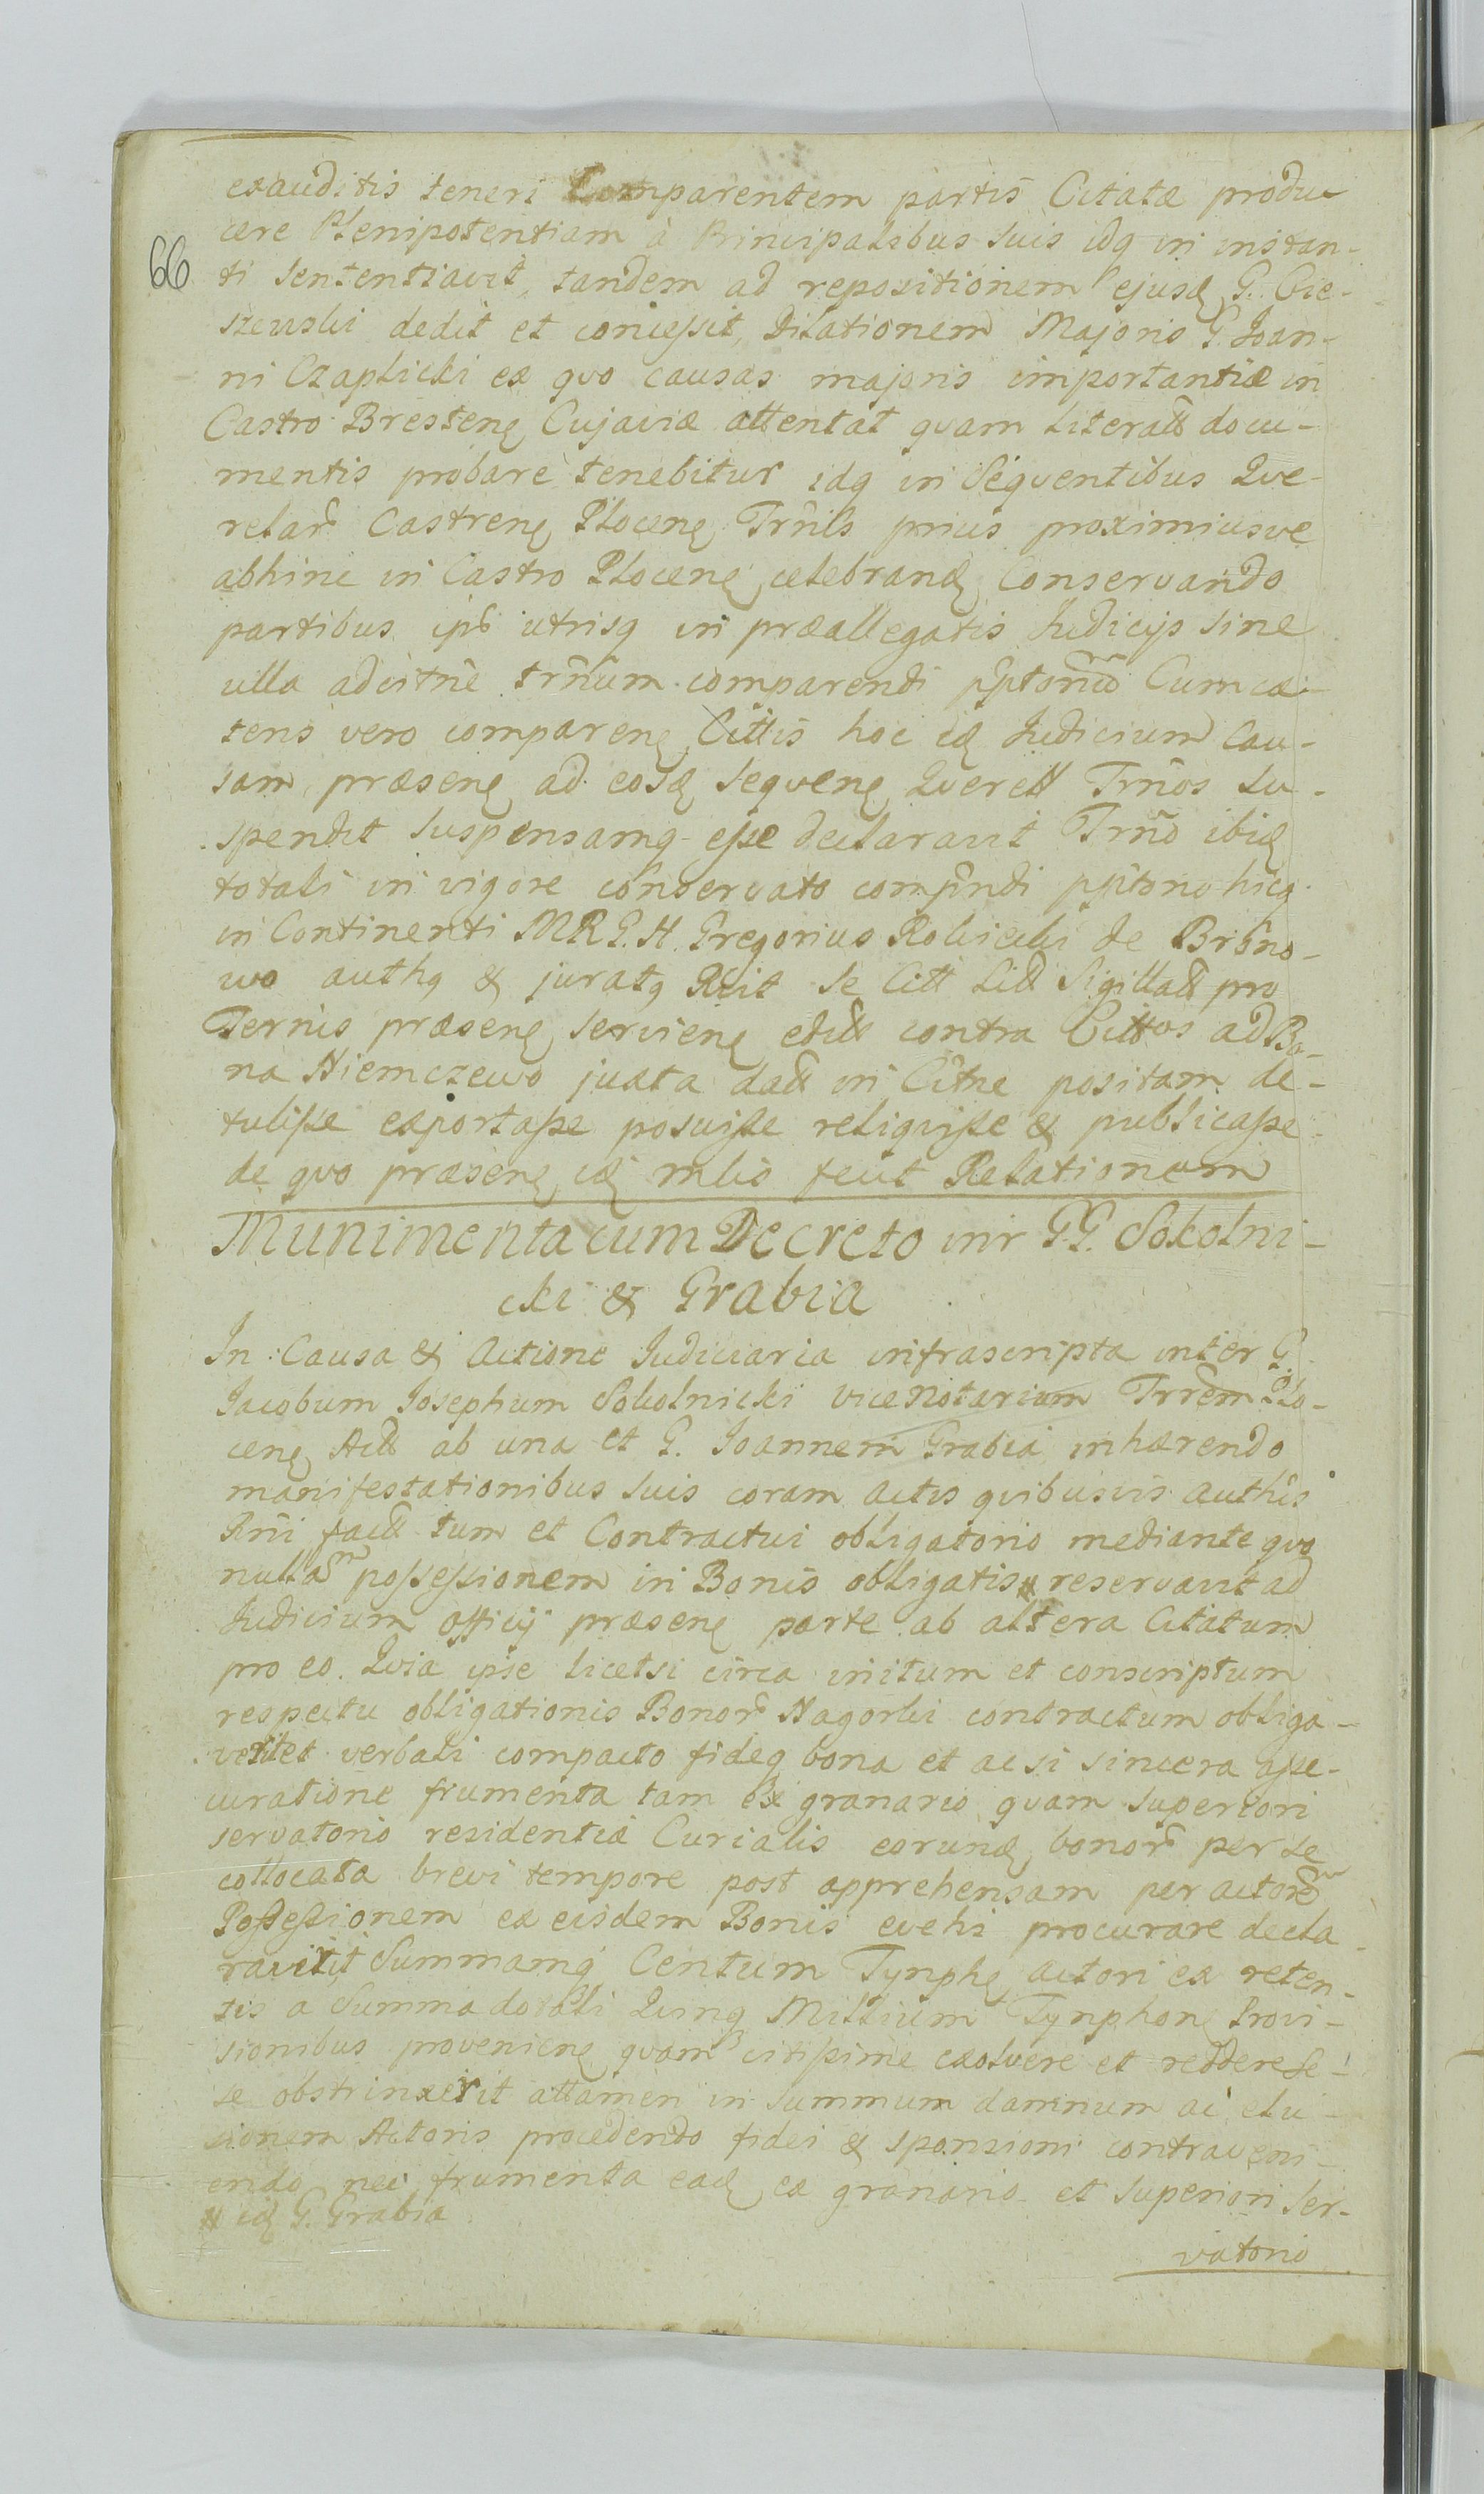 exauditis teneri Comparentem partis Citatæ produ
cere Plenipotentiam à Principalibus suis idq in instan-
66
ti sententiavit, tandem ad repositionem ejusd G. Cie-
szewski dedit et concessit, Dilationem Majoris G. Joan-
ni Czaplicki ex quo causas majoris importantiæ in
Castro Bresten Cujaviæ attentat quam literatt docu-
mentis probare tenebitur idq in Sequentibus Que-
relar Castren Plocen Trnils prius proximiusve
abhinc in Castro Plocen celebrand Conservando
partibus ips utrisq in præallegatis Judicijs sine
ulla adcitne trnum comparendi Cum cæ-
teris vero comparen Cittis hoc id Judicium Cau-
sam præsen ad eosd sequen Querell Trnos su-
spendit suspensamq esse declaravit Trno ibid
totali in vigore conservato hicq
in Continenti MRG. N. Gregorius de
wo auth & jurat Rcit se Citt Litt Sigillatt pro
Ternis præsen servien editt contra Cittos ad Bo-
na Niemczewo juxta datt in Citne positam de-
tulisse exportasse posuisse reliquisse & publicasse
de quo præsen id mlis fecit Relationem
Munimenta cum Decreto intr GG. Sokolni-
cki & Grabia
In Causa & Actione Judiciaria infrascripta inter G.
Jacobum Josephum Sokolnicki vice Notarium Trrem Plo-
cen Act ab una et G. Joannem Grabia inhærendo
manifestationibus suis coram actis quibusvis auths
Rni fact tum et Contractui obligatorio mediante quo
nullam possessionem in Bonis obligatis # reservavit ad
Judicium officij præsen parte ab altera Citatum
pro eo. Quia ipse licetsi circa initum et conscriptum
respectu obligationis Bonor Nagorki contractum obliga-
veritet verbali compacto fideq bona et ac si sincera asse-
curatione frumenta tam ex granario quam superiori
servatorio residentiæ Curialis eorund bonor per se
collocata brevi tempore post apprehensam per actorem
Possessionem ex eisdem Bonis evehi procurare decla-
raverit Summamq Centum Tynph actori ex reten-
tis a Summa dotali Quinq Millium Tynphon Provi-
sionibus provenien quam citissime exolvere et reddere se-
se obstrinxerit attamen in summum damnum ac elu-
sionem Actoris procedendo fidei & sponsioni contraveni-
endo nec frumenta ead ex granario et superiori ser-
# id G. Grabia
vatorio